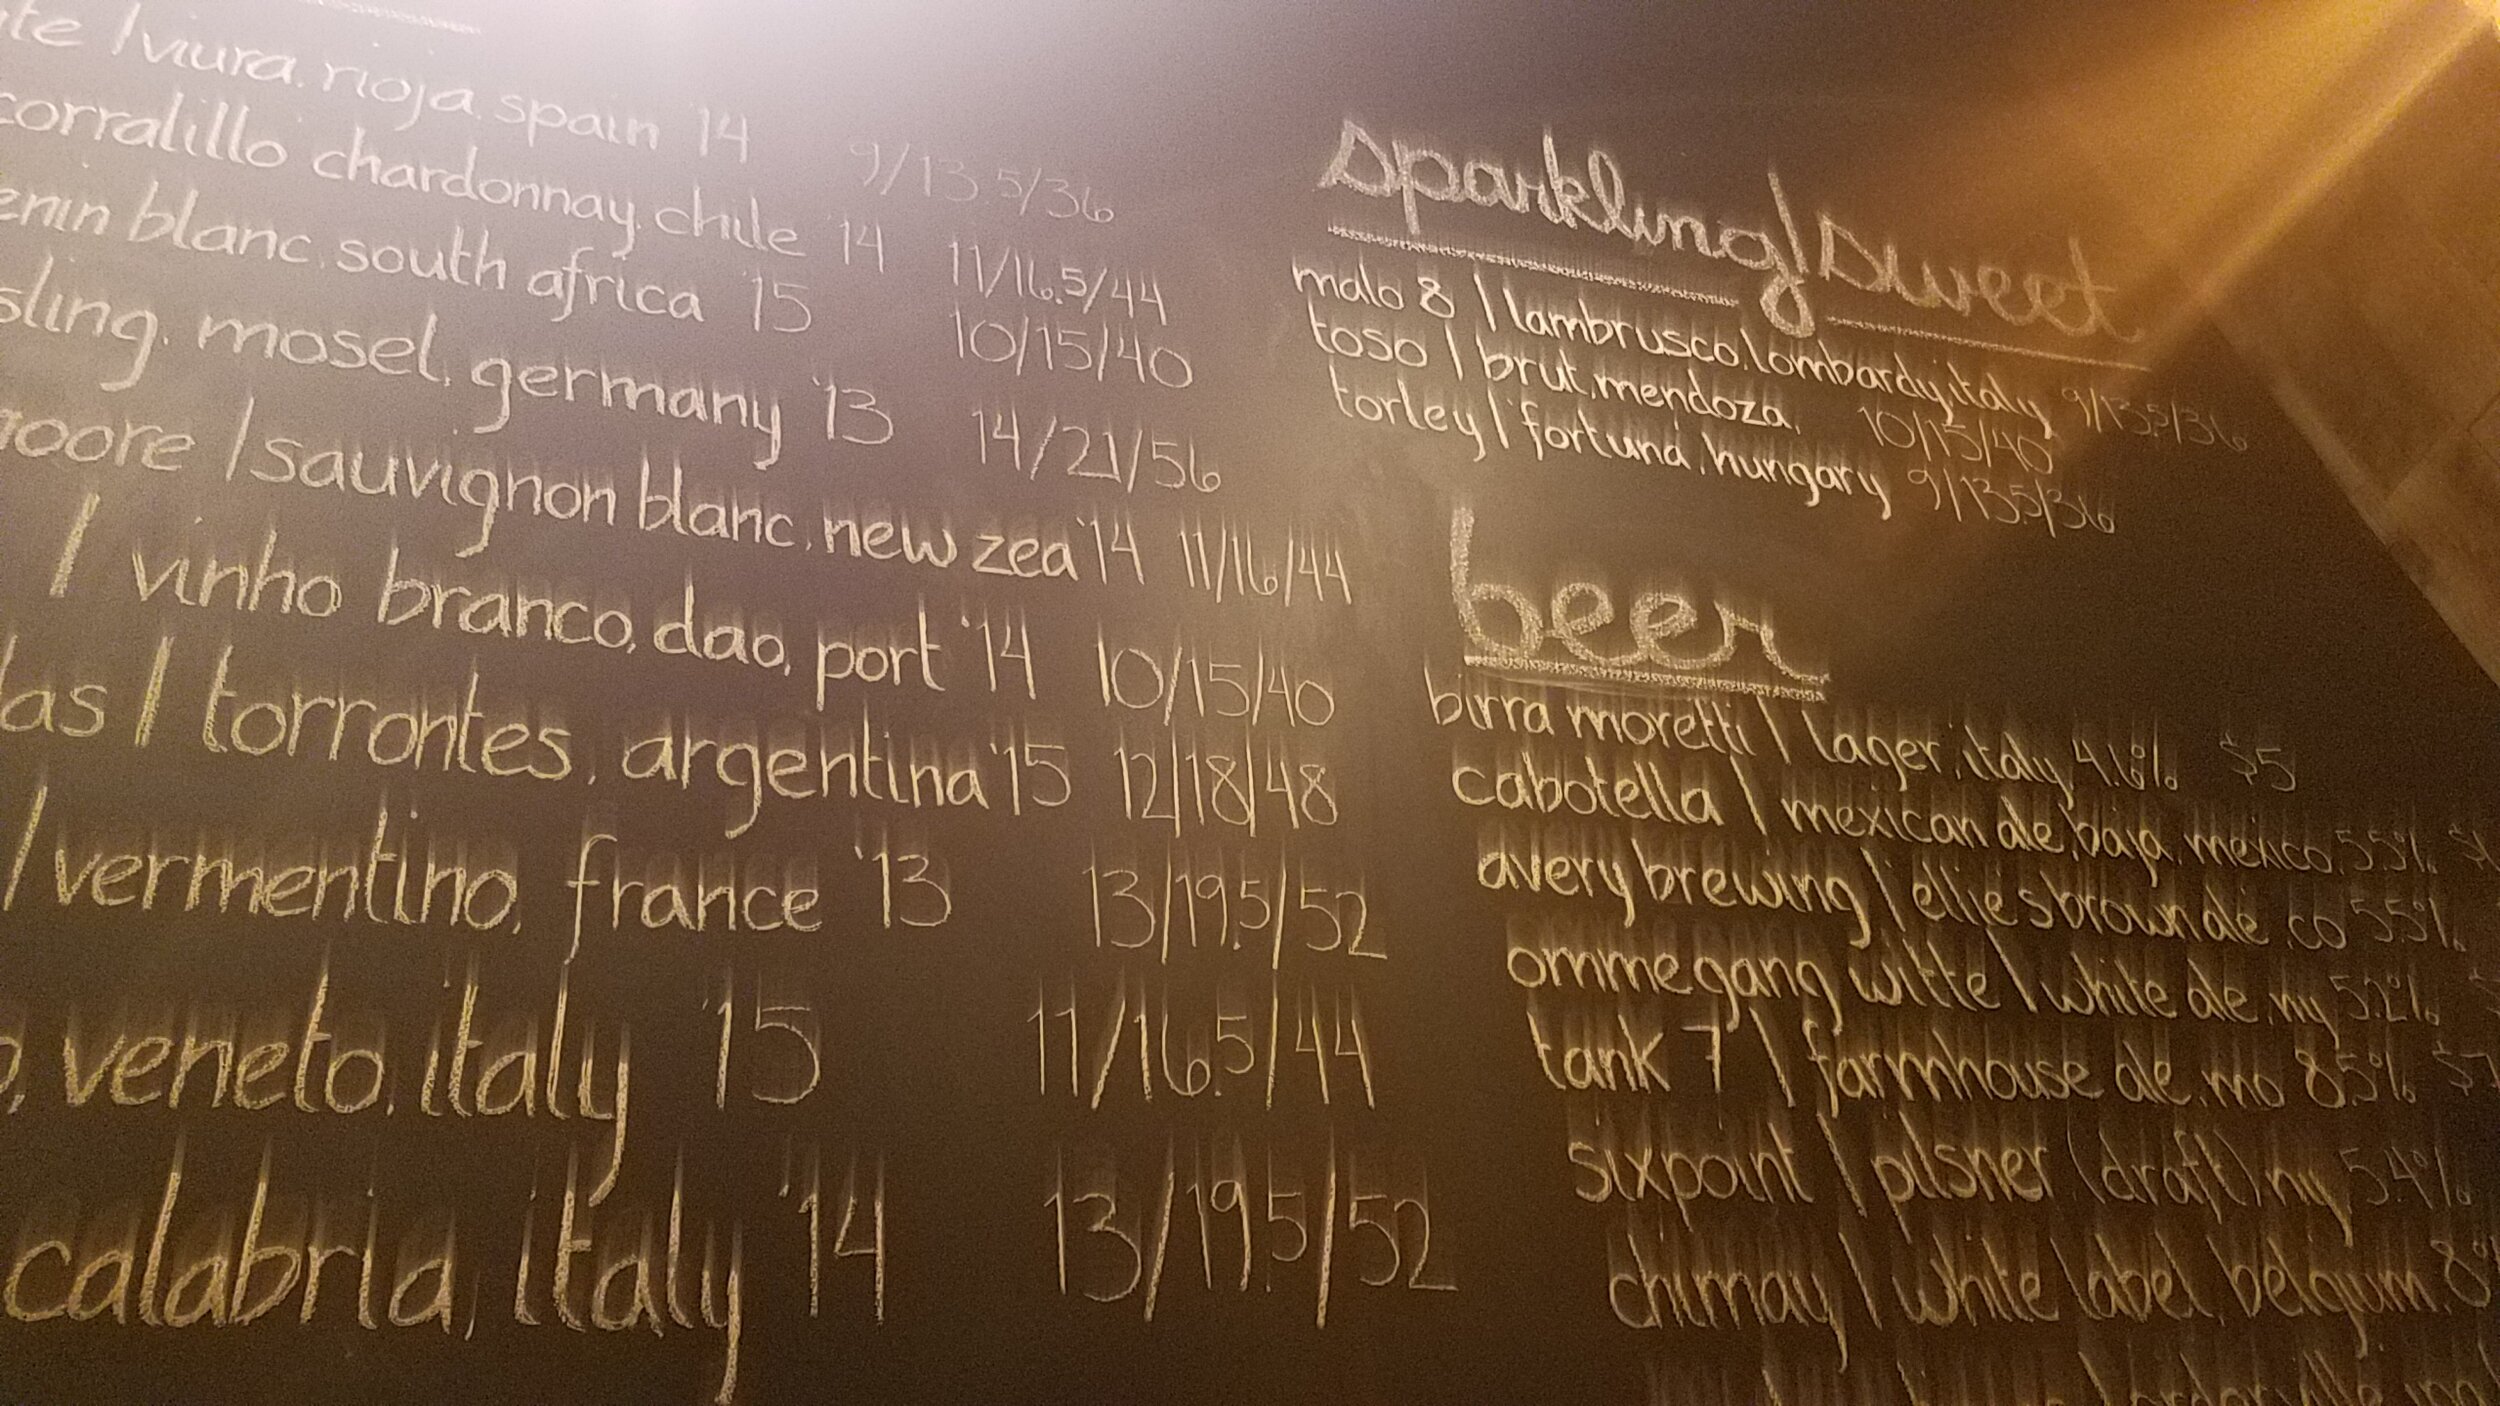 viura, rioja, spain '14 9/13.5/36
corralillo chardonnay, chile '14 11/16.5/44
enin blanc, south africa '15 10/15/40
sling, mosel, germany '13 14/21/56
oore / sauvignon blanc, new zea '14 11/16/44
/ vinho branco, dao, port '14 10/15/40
las / torrontes, argentina '15 12/18/48
/ vermentino, france '13 13/19.5/52
, veneto, italy '15 11/16.5/44
calabria, italy '14 13/19.5/52
sparkling/sweet
malo 8 / lambrusco, lombardy, italy 9/13.5/36
toso / brut, mendoza, 10/15/40
torley / fortuna, hungary 9/13.5/36
beer
birra moretti / lager, italy 4.6% $5
cabotella / mexican ale, baja, mexico, 5.5%
avery brewing / ellie's brown ale, co 5.5%
ommegang witte / white ale, ny 5.2%
tank 7 / farmhouse ale, mo 8.5% $7
sixpoint / pilsner (draft), ny 5.4%
chimay / white label, belgium, 8%